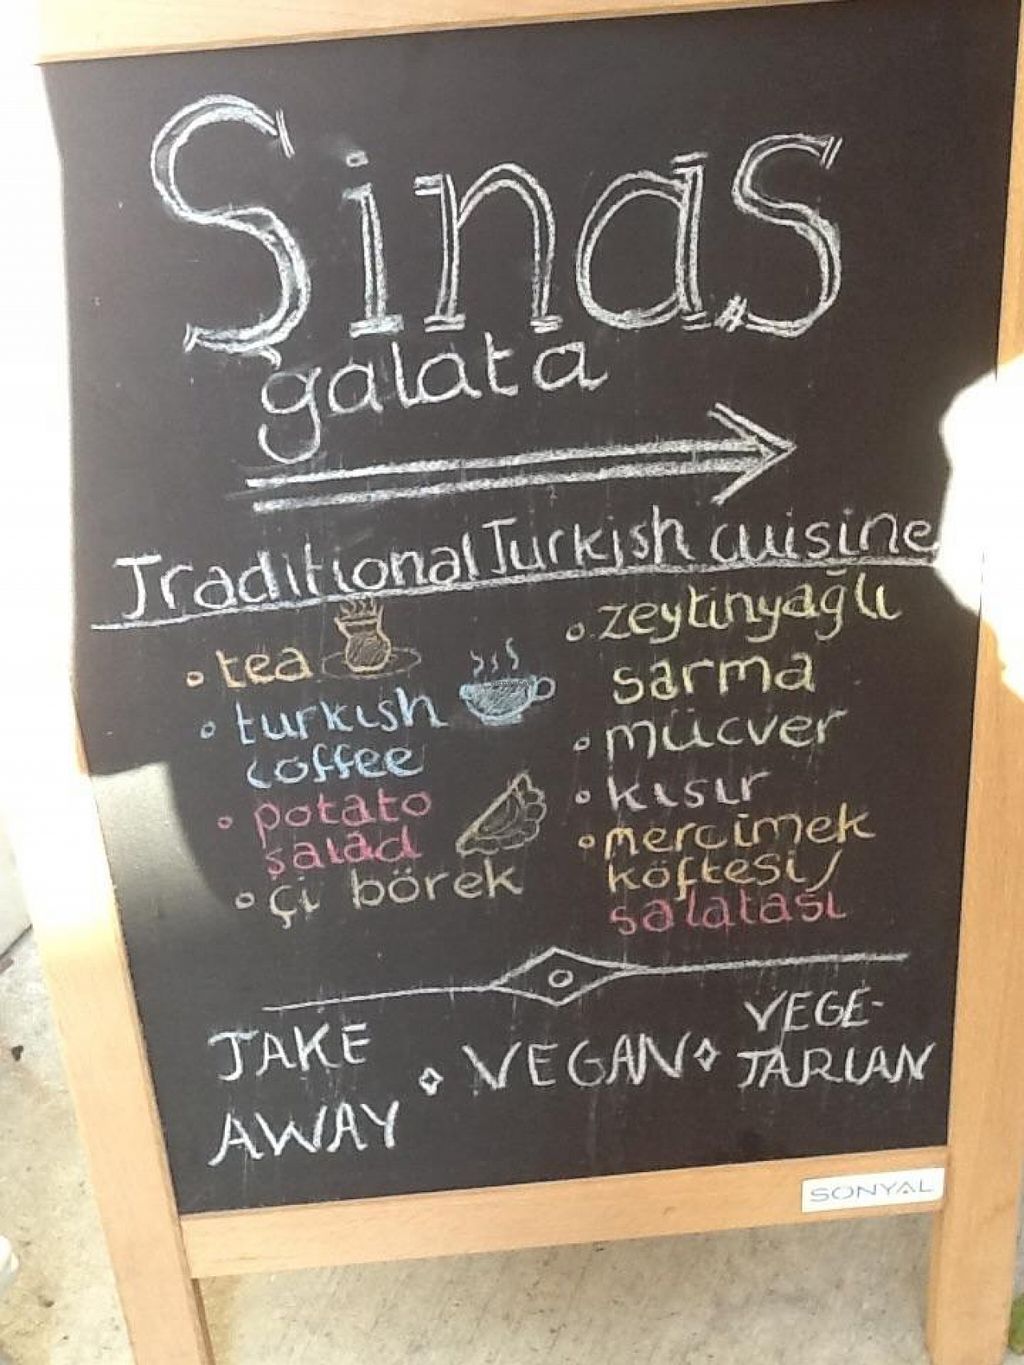 Sinas
galata
Traditional Turkish cuisine
• tea
• turkısh
coffee
• potato
salad
• çi börek
• zeytinyağlı
sarma
• mücver
• kısır
• mercimek
köftesi/
salatası
TAKE
AWAY
VEGAN
VEGE-
TARIAN
SONYAL